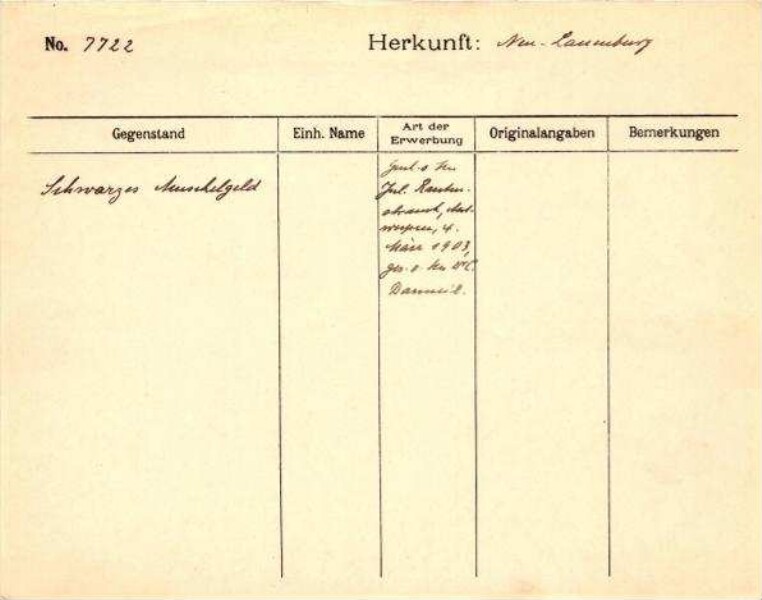 No. 7722
Herkunft: Neu-Lauenburg
Gegenstand
Einh. Name
Art der
Erwerbung
Originalangaben
Bemerkungen
Schwarzes Muschelgeld
Jul. Rauten-
strauch, Ant-
werpen, 4.
März 1903,
ges. v. Hrn Dr C.